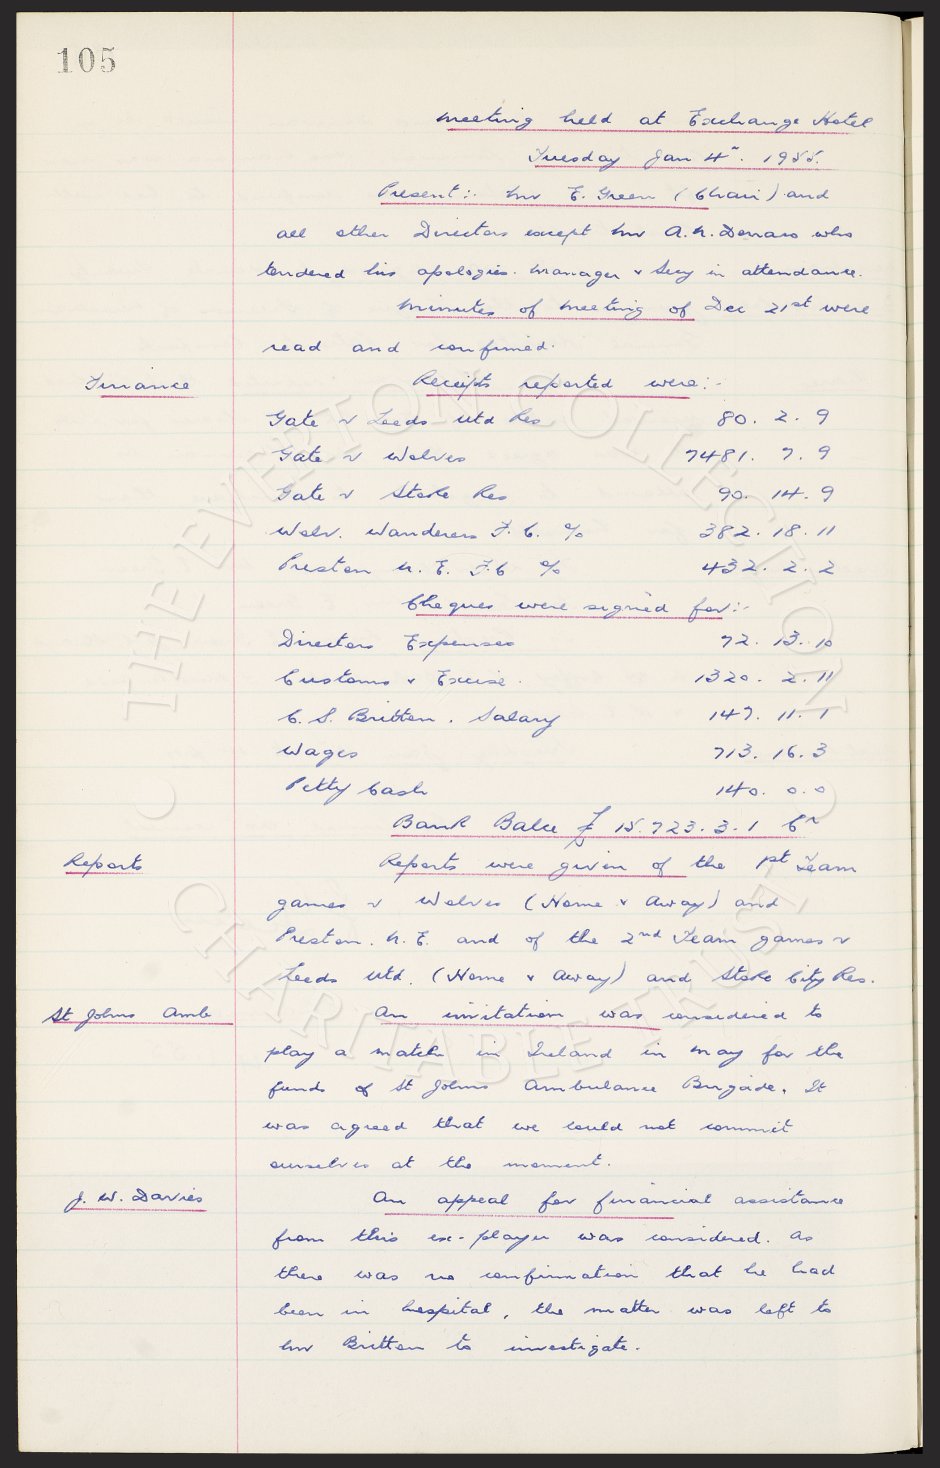 105
Meeting held at Exchange Hotel
Tuesday Jan 4th. 1955.
Present:- Mr E. Green (Chair) and
all other Directors except Mr A.N. Denaro who
tendered his apologies. Manager & Secy in attendance.
Minutes of Meeting of Dec 21st were
read and confirmed.
Finance
Receipts reported were:-
Gate v Leeds Utd Res 80. 2. 9
Gate v Wolves 7481. 7. 9
Gate v Stoke Res 90. 14. 9
Wolv. Wanderers F.C. % 382. 18. 11
Preston N.E. F.C % 432. 2. 2
Cheques were signed for:-
Directors Expenses 72. 13. 10
Customs & Excise. 1320. 2. 11
C. S. Britten. Salary 147. 11. 1
Wages 713. 16. 3
Petty Cash 140. 0. 0
Bank Balce £ 15.723. 3. 1 Cr
Reports
Reports were given of the 1st Team
games v Wolves (Home & Away) and
Preston. N.E. and of the 2nd Team games v
Leeds Utd. (Home & Away) and Stoke City Res.
St Johns Amb
An invitation was considered to
play a match in Ireland in May for the
funds of St Johns Ambulance Brigade. It
was agreed that we could not commit
ourselves at the moment.
J. W. Davies
An appeal for financial assistance
from this ex-player was considered. As
there was no confirmation that he had
been in hospital, the matter was left to
Mr Britten to investigate.
© THE EVERTON COLLECTION CHARITABLE TRUST